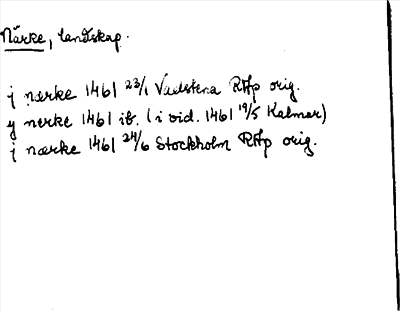 Närke, landskap.
j nærke 1461 23/1 Vadstena RAp orig.
y nerke 1461 ib. (i vid. 1461 19/5 Kalmar)
j nærke 1461 24/6 Stockholm RAp orig.